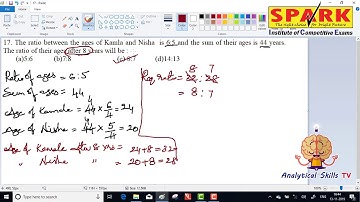 SPARK
Institute of Competitive Exams
17. The ratio between the ages of Kamla and Nisha is 6:5 and the sum of their ages is 44 years.
The ratio of their ages after 8 years will be :
(a)5:6 (b)7:8 (c) 8:7 (d)14:13
Ratio of ages = 6:5
Sum of ages = 44
Age of Kamala = 44 × 6/11 = 24
Age of Nisha = 44 × 5/11 = 20
Age of Kamala after 8 yrs = 24+8 = 32
" Nisha " " = 20+8 = 28
8 7
Req ratio = 32 : 28
= 8 : 7
Analytical Skills TV